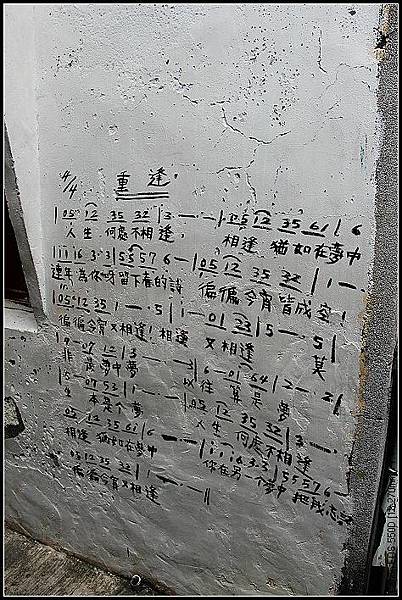 4/4 重逢.
| 05 12 35 32 | 3 - - - | 05 12 35 61 | 6
人生 何處不相逢, 相逢 猶如在夢中
| i i i 6 3·3 | 5 5 5 7 6 - | 05 12 35 32 | 1 - - -
連年為你呀留下春的詩 偏偏今宵皆成空!
| 05 12 35 1 - · 5 | 1 - 01 23 | 5 - · 5 |
偏偏今宵又相逢! 相逢 又相逢 莫
1 - 07 12 | 3 - - - 3 | 6 - 01 64 | 2 - · 2 |
非 是夢中夢 以往 算是夢
5 - 07 53 | 1 - - - | 05 12 35 32 | 3 - - -
生 本是个夢 人生 何處不相逢
05 12 35 61 | 6 - - - | i i i 6 3·3 | 5 5 5 7 6 -
相逢 猶如在夢中 你在另一个夢中 把我忘記
05 12 35 32 | 1 - - - ||
偏偏今宵又相逢